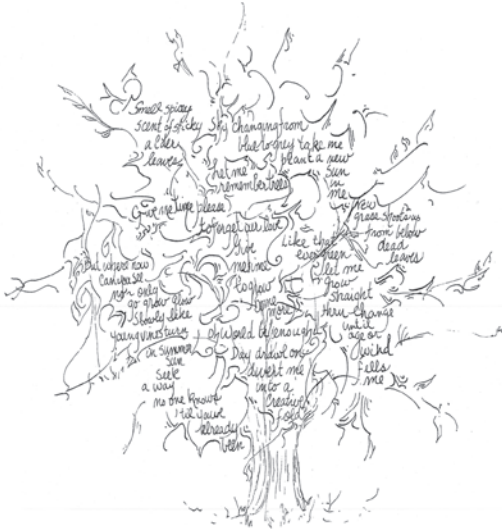 Small spicy
scent of sticky
alder
leaves
Sky changing from
blue to grey take me
plant a new
sun
in
me
Let me
remember trees
Give me time please
to forget
new
grass shoots up
from below
dead
leaves
Like that
evergreen
let me
grow
straight
thru change
until
age or
wind
fells
me
to grow
some
more
But where now
can
go grow
slowly like
young vines turn
on summer
sun
seek
a way
no one knows
til you've
already
been
World be enough
Day
divert me
into a
creative